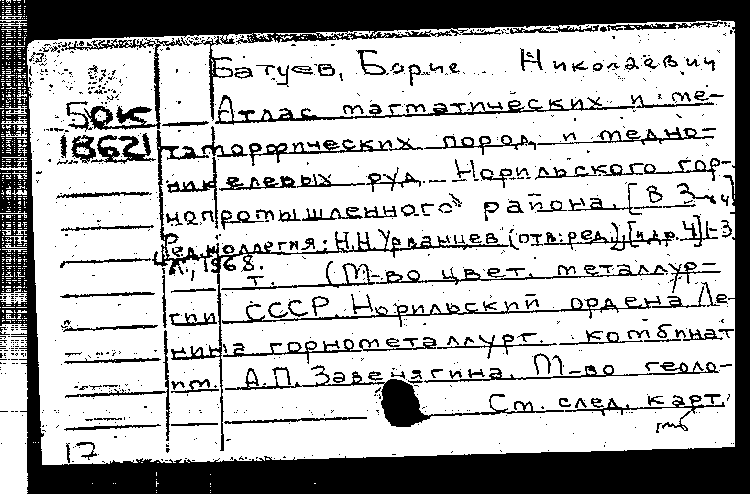 Батуев, Борис Николаевич
50к Атлас магматических и ме-
18621 таморфических пород и медно-
никелевых руд Норильского гор-
нопромышленного района. [В 3-х ч]
Ред. коллегия: Н.Н. Урванцев (отв. ред.), [и др. 4] 1-3
Л., 1968.
т. (М-во цвет. металлур-
гии СССР. Норильский ордена Ле-
нина горнометаллург. комбинат
им. А.П. Завенягина. М-во геоло-
См. след. карт.
17